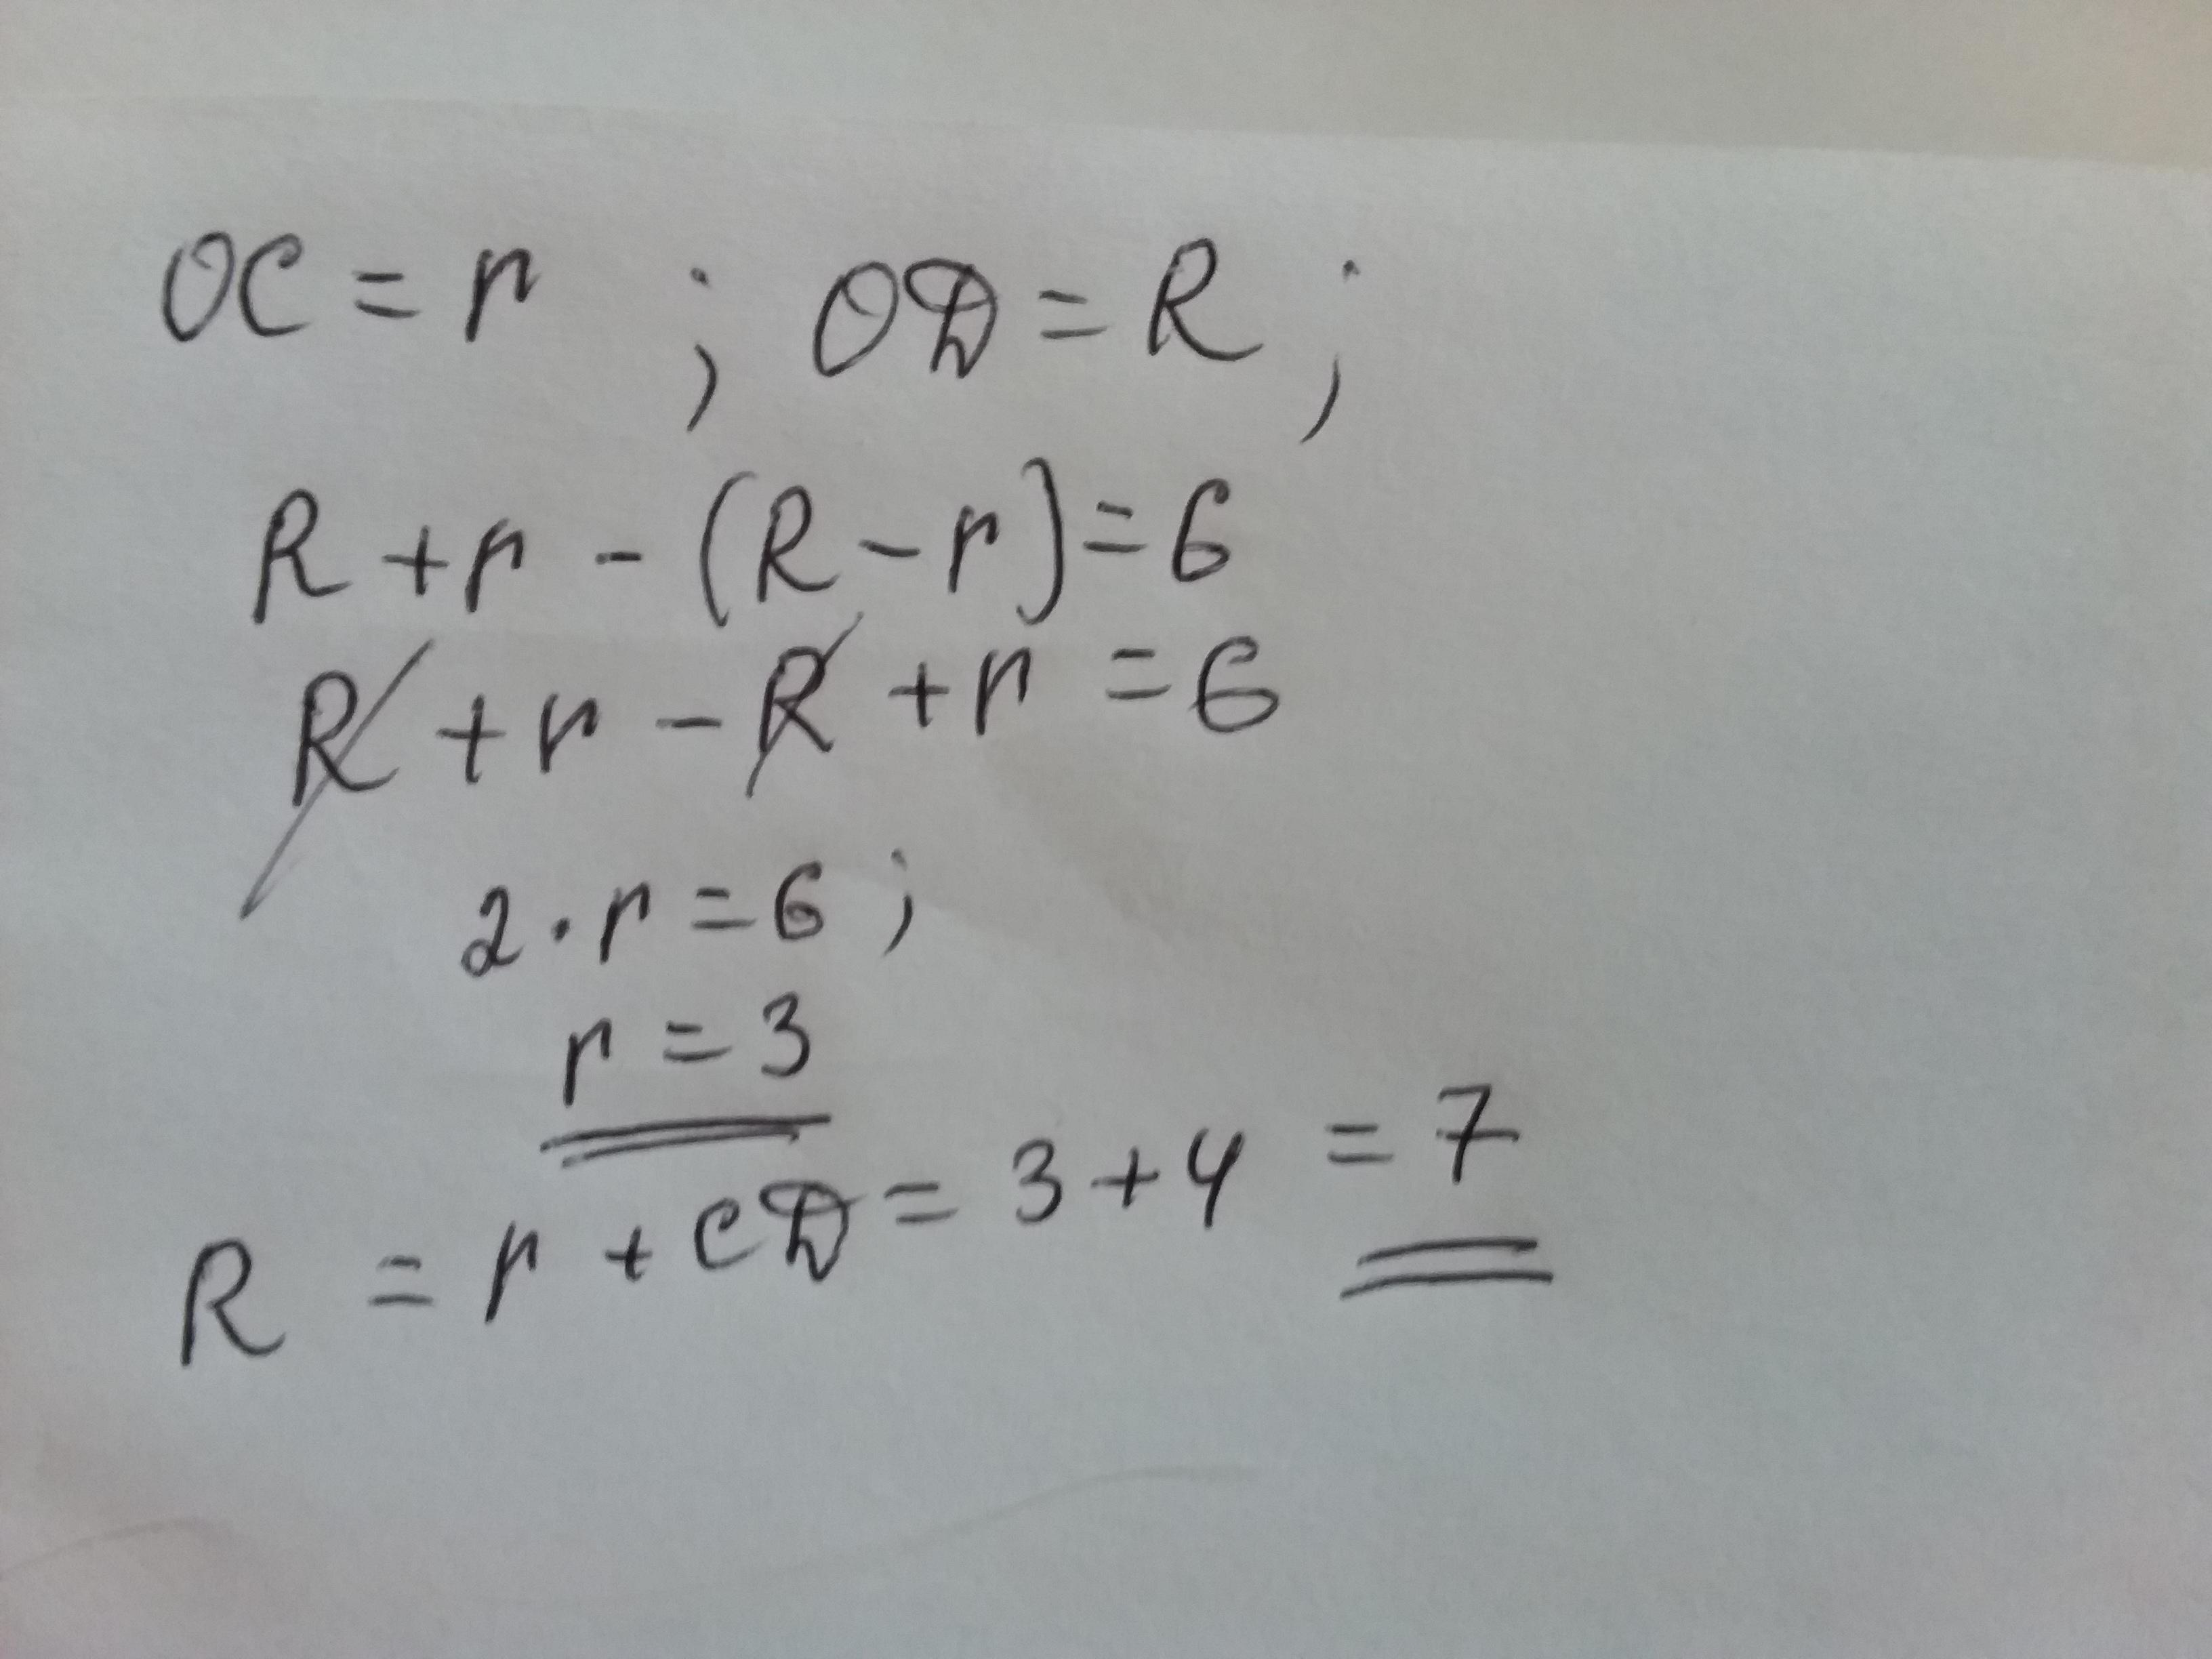 OC = r ; OD = R ;
R + r - (R - r) = 6
R + r - R + r = 6
2 · r = 6 ;
r = 3
R = r + CD = 3 + 4 = 7